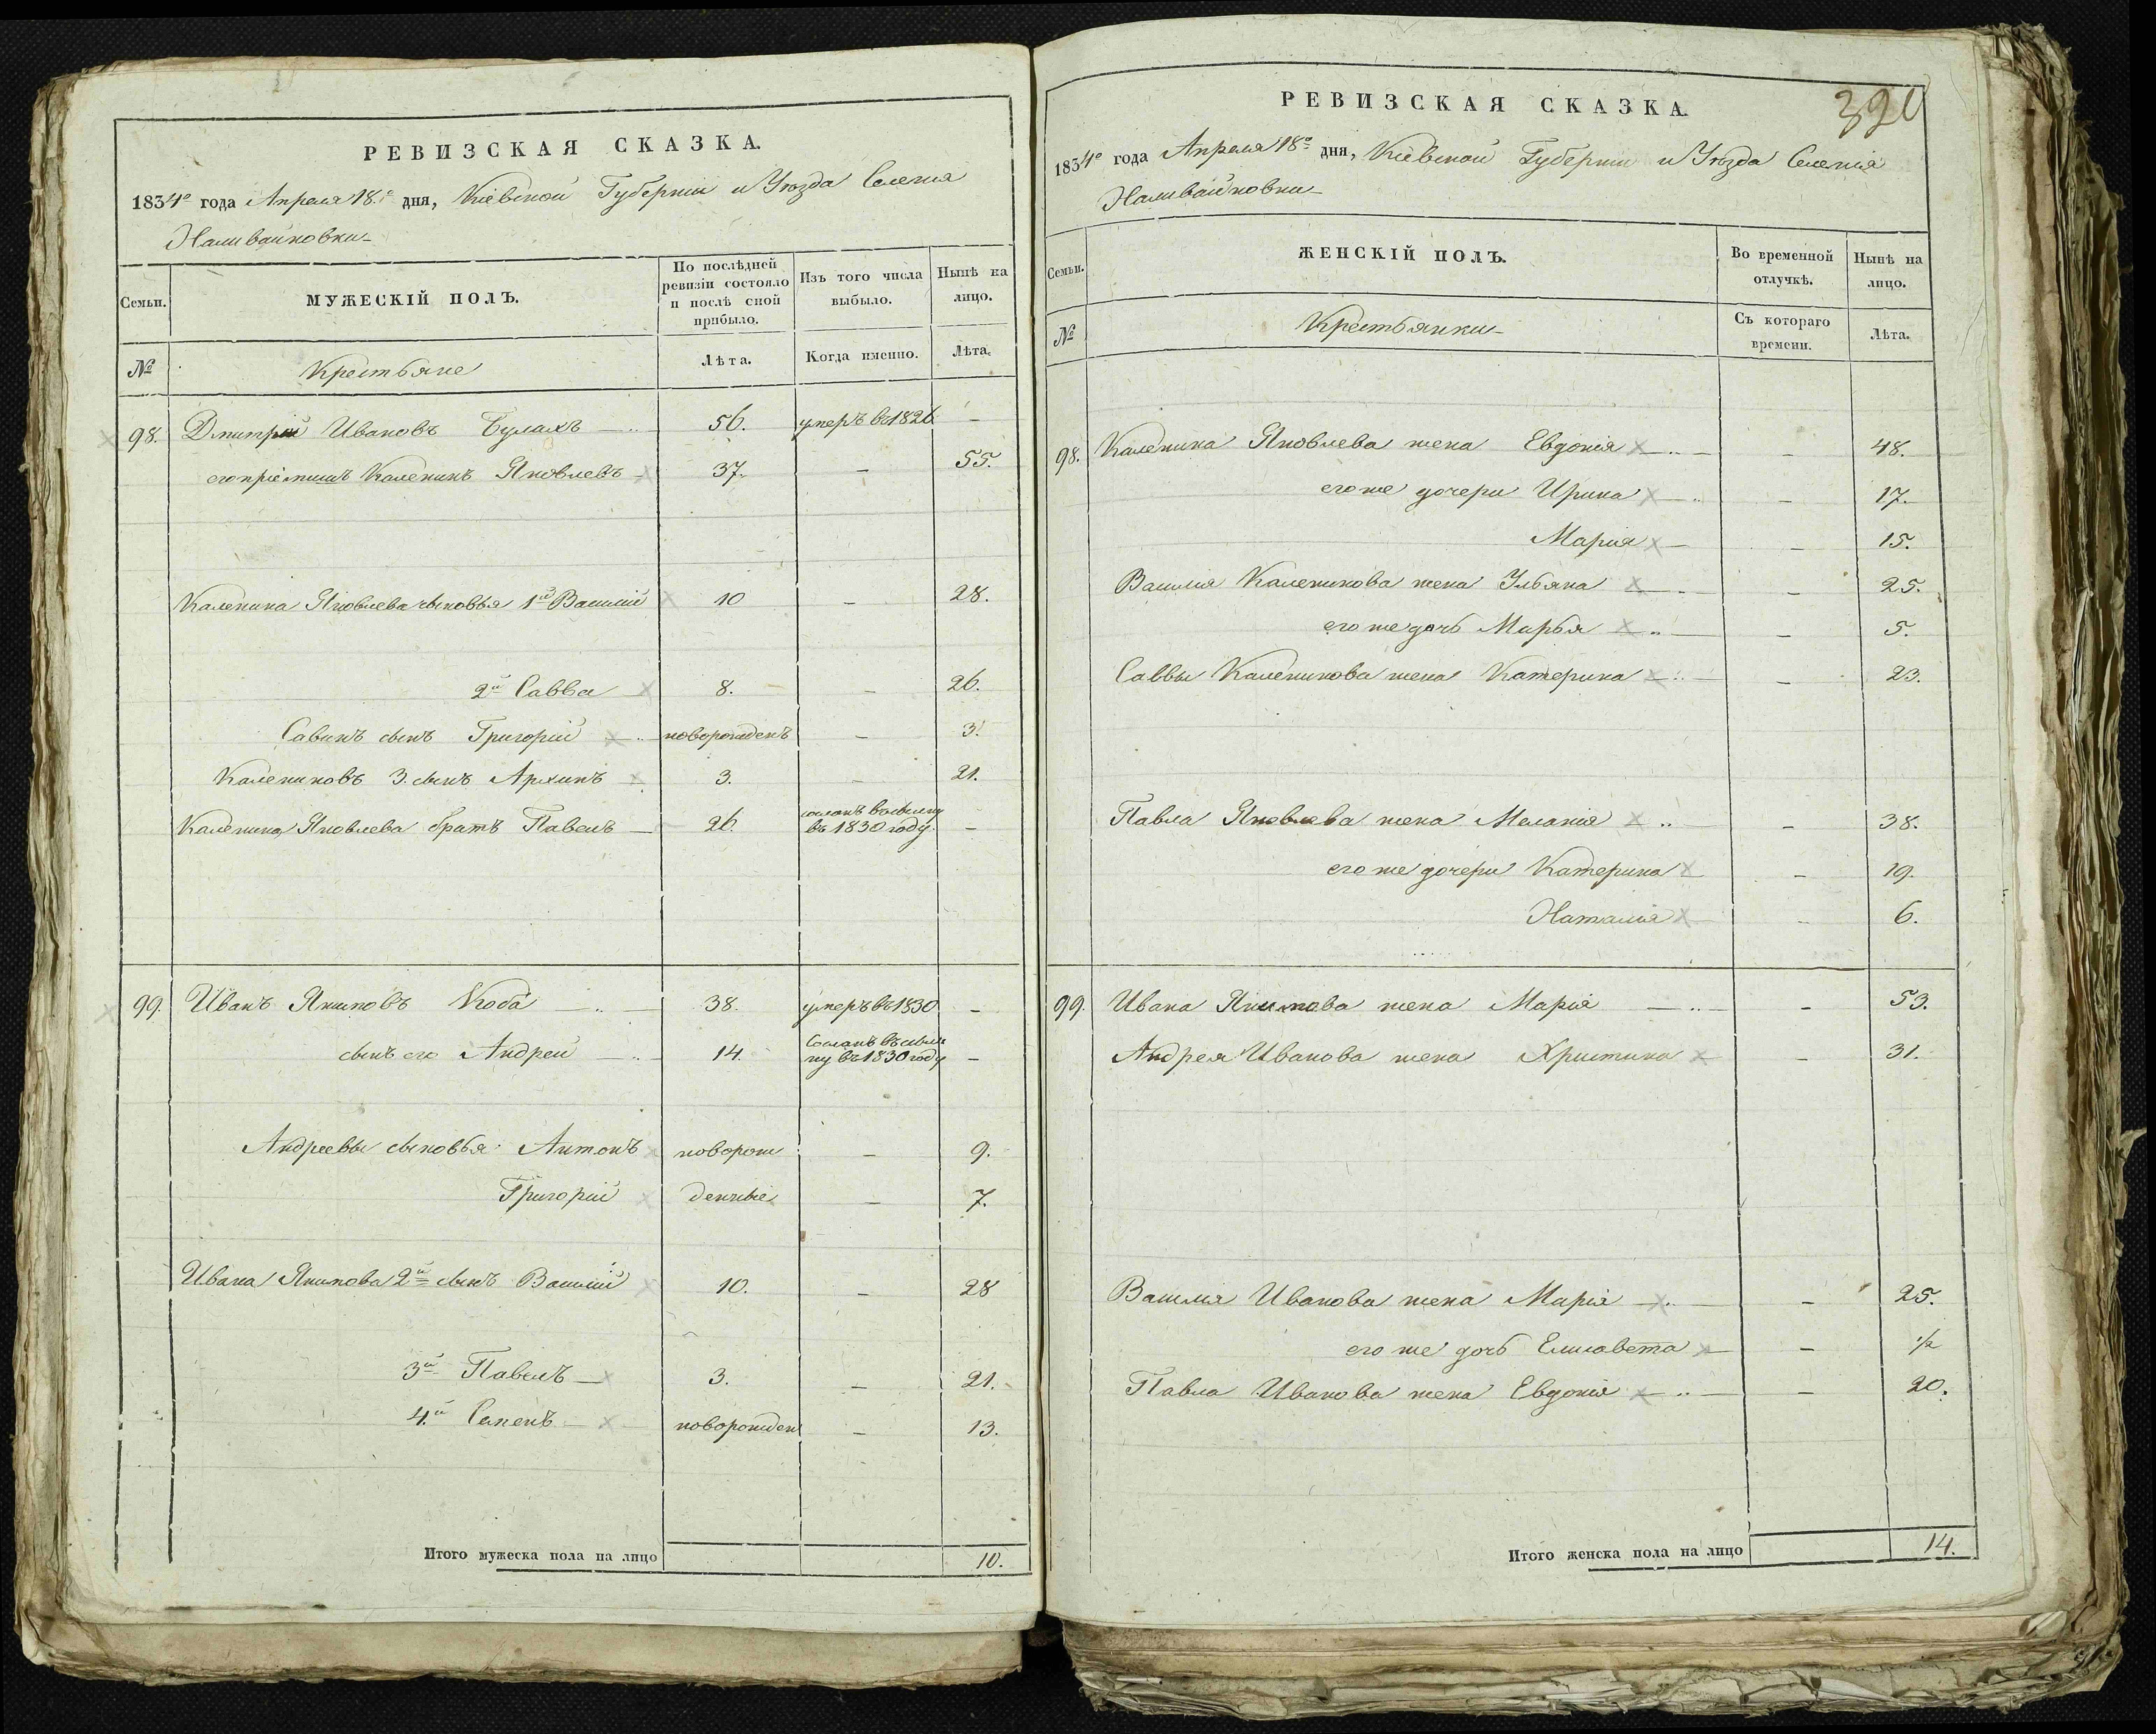 РЕВИЗСКАЯ СКАЗКА.
1834го года Апреля 18го дня, Кіевской Губерніи и Уѣзда Селенія
Наливайковки
Семьи.
МУЖЕСКІЙ ПОЛЪ.
По послѣдней ревизіи состояло и послѣ оной прибыло.
Изъ того числа выбыло.
Нынѣ на лицо.
№
Крестьяне
Лѣта.
Когда именно.
Лѣта.
98. Дмитрій Ивановъ Булахъ — 56. умеръ въ 1826 —
его пріемышъ Каленикъ Яковлевъ 37. — 55.
Каленика Яковлева сыновья 1й Василій 10 — 28.
2й Савва 8. — 26.
Савинъ сынъ Григорій новорожденъ — 3.
Калениковъ 3. сынъ Архипъ 3. — 21.
Каленика Яковлева братъ Павелъ — 26. сосланъ въ ссылку въ 1830 году. —
99. Иванъ Якимовъ Коба — 38. умеръ въ 1830 —
сынъ его Андрей — 14. Сосланъ въ ссылку въ 1830 году —
Андреевы сыновья Антонъ новорож — 9.
Григорій денные — 7.
Ивана Якимова 2й сынъ Василій 10. — 28
3й Павелъ — 3. — 21.
4й Семенъ — новорожден — 13.
Итого мужеска пола на лицо 10.
320
РЕВИЗСКАЯ СКАЗКА.
1834го года Апреля 18го дня, Кіевской Губерніи и Уѣзда Селенія
Наливайковки
Семьи.
ЖЕНСКІЙ ПОЛЪ.
Во временной отлучкѣ.
Нынѣ на лицо.
№
Крестьянки
Съ котораго времени.
Лѣта.
98. Каленика Яковлева жена Евдокія — 48.
его же дочери Ирина — 17.
Марія — 15.
Василія Каленикова жена Ульяна — 25.
его же дочь Марья — 5.
Саввы Каленикова жена Катерина — 23.
Павла Яковлева жена Меланія — 38.
его же дочери Катерина — 19.
Наталія — 6.
99. Ивана Якимова жена Марія — 53.
Андрея Иванова жена Христина — 31.
Василія Иванова жена Марія — 25.
его же дочь Елисавета — 1/2
Павла Иванова жена Евдокія — 20.
Итого женска пола на лицо 14.